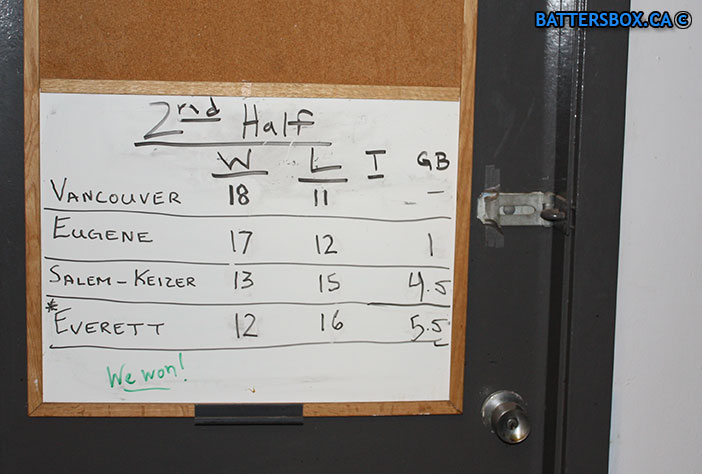 BATTERSBOX.CA ©
2nd Half
W L T GB
VANCOUVER 18 11 —
EUGENE 17 12 1
SALEM-KEIZER 13 15 4.5
*EVERETT 12 16 5.5
We won!